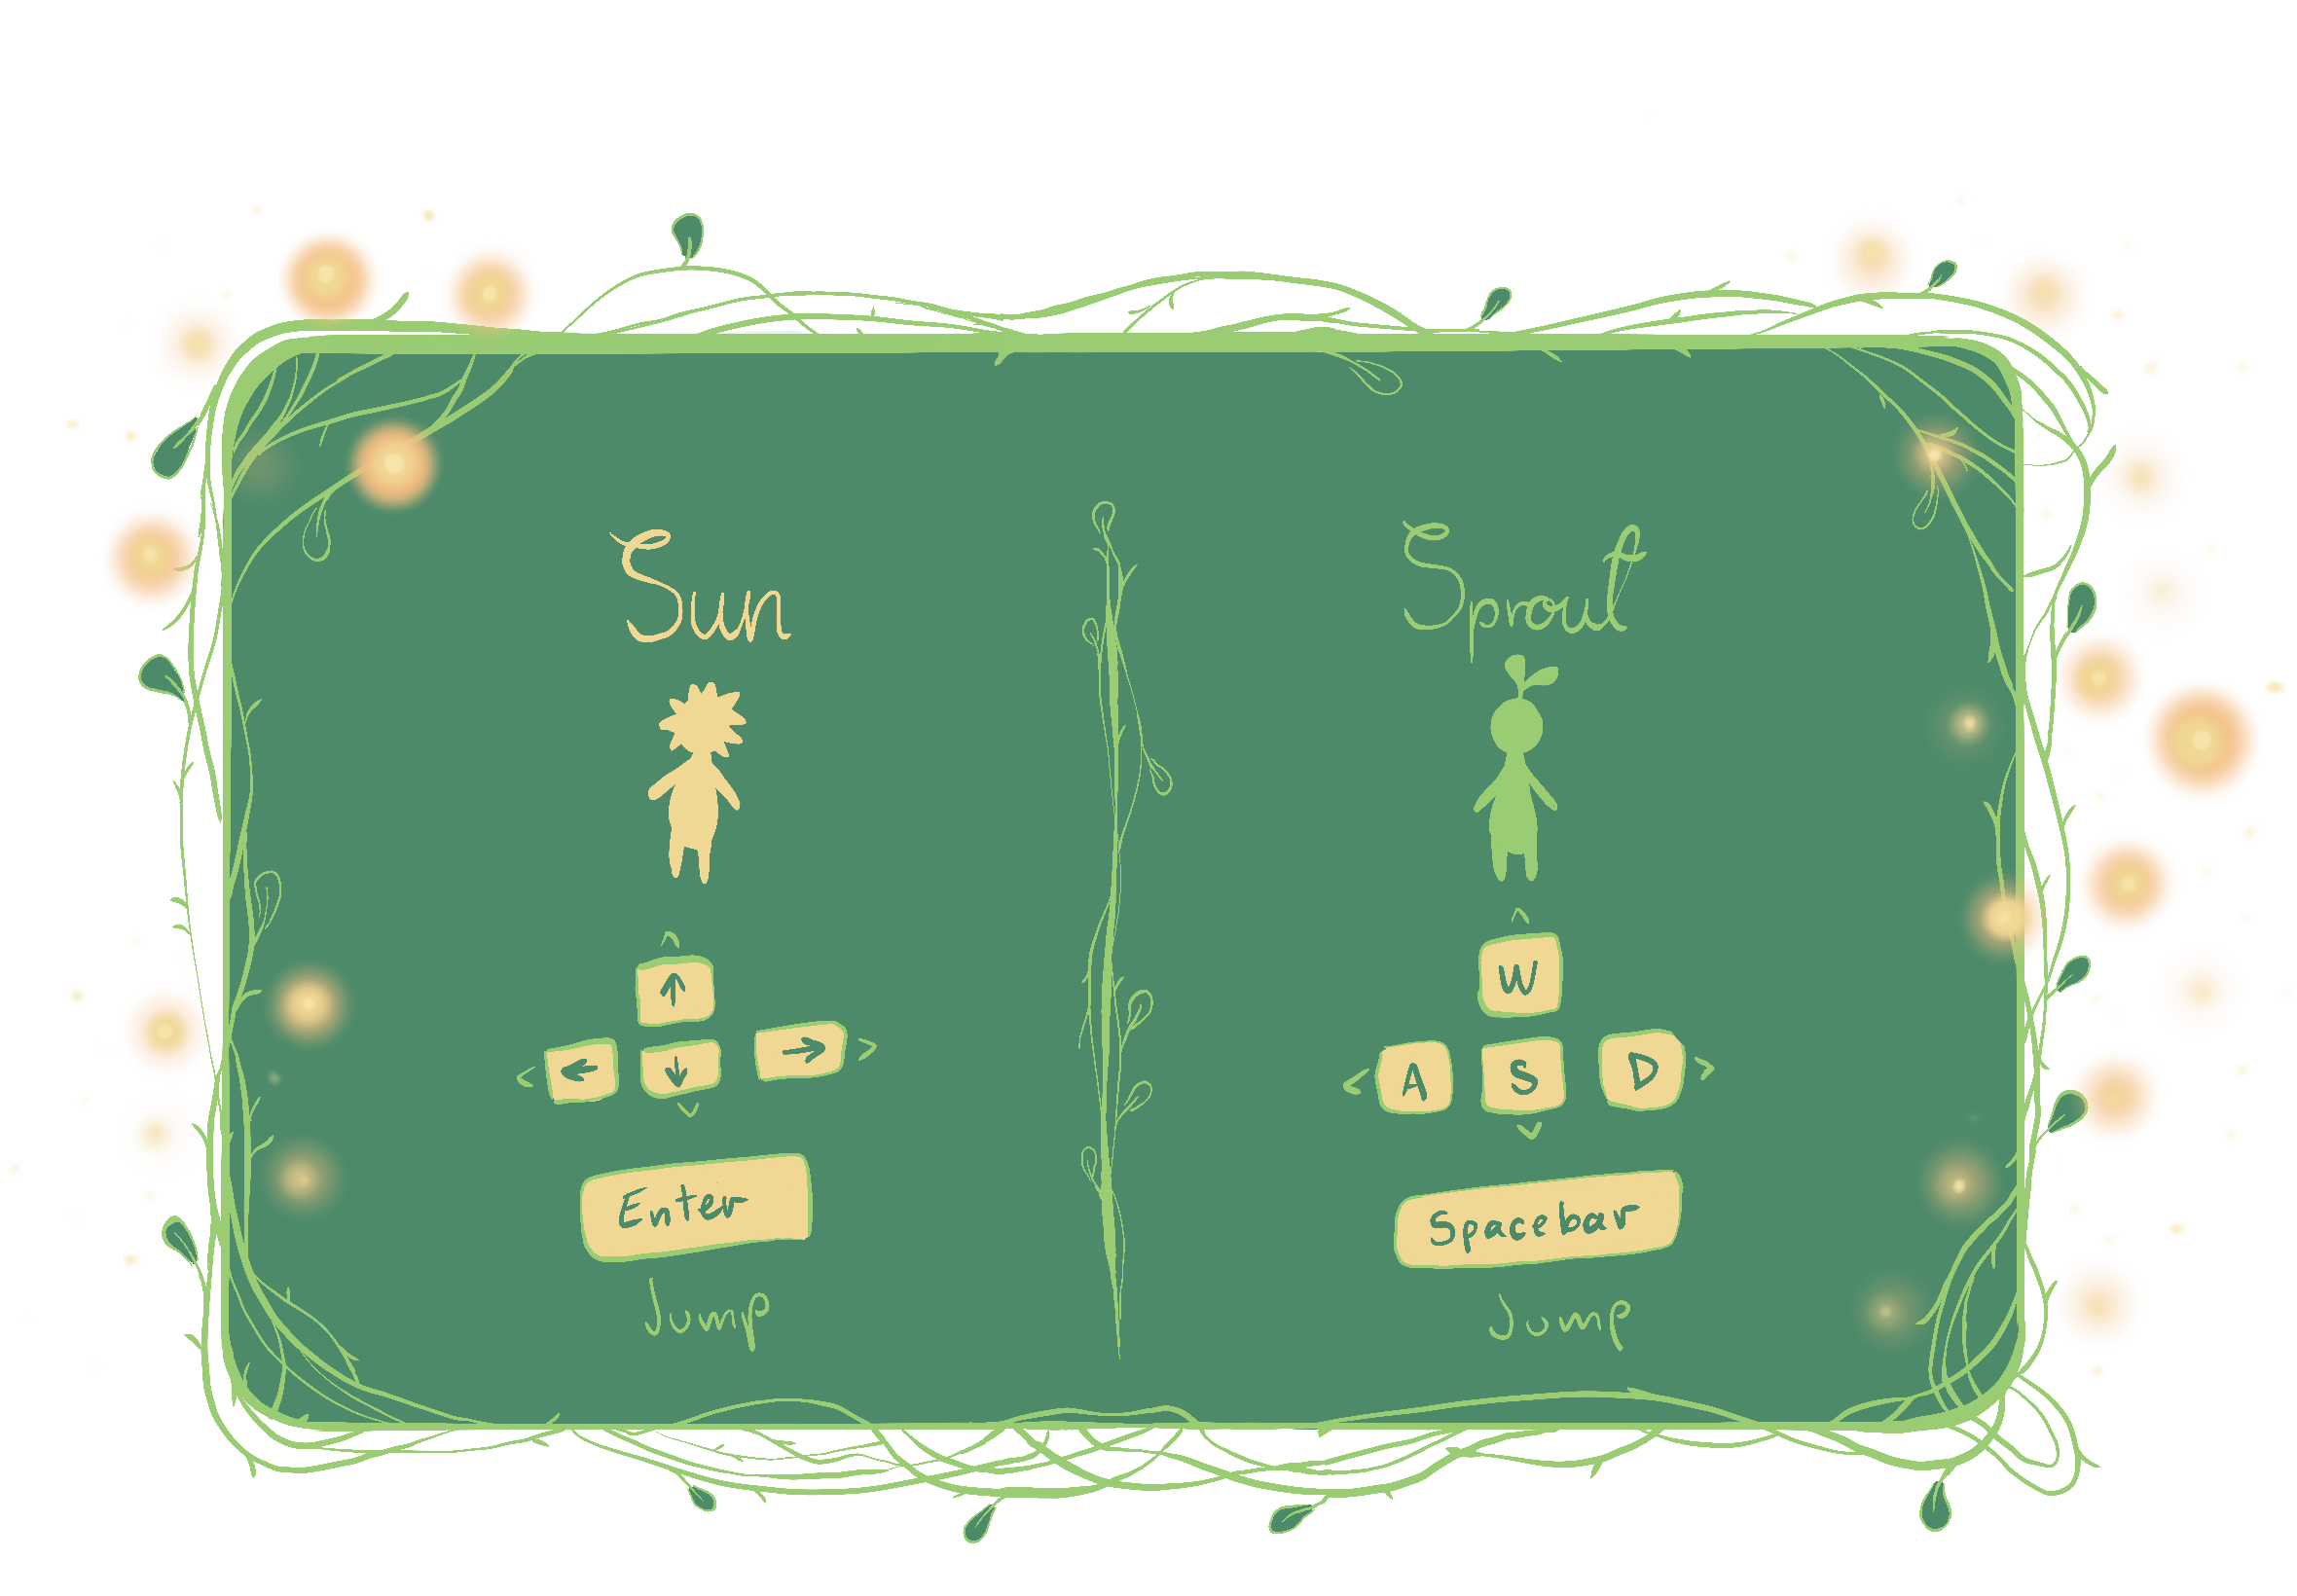 Sun
↑
← ↓ →
Enter
Jump
Sprout
W
A S D
Spacebar
Jump